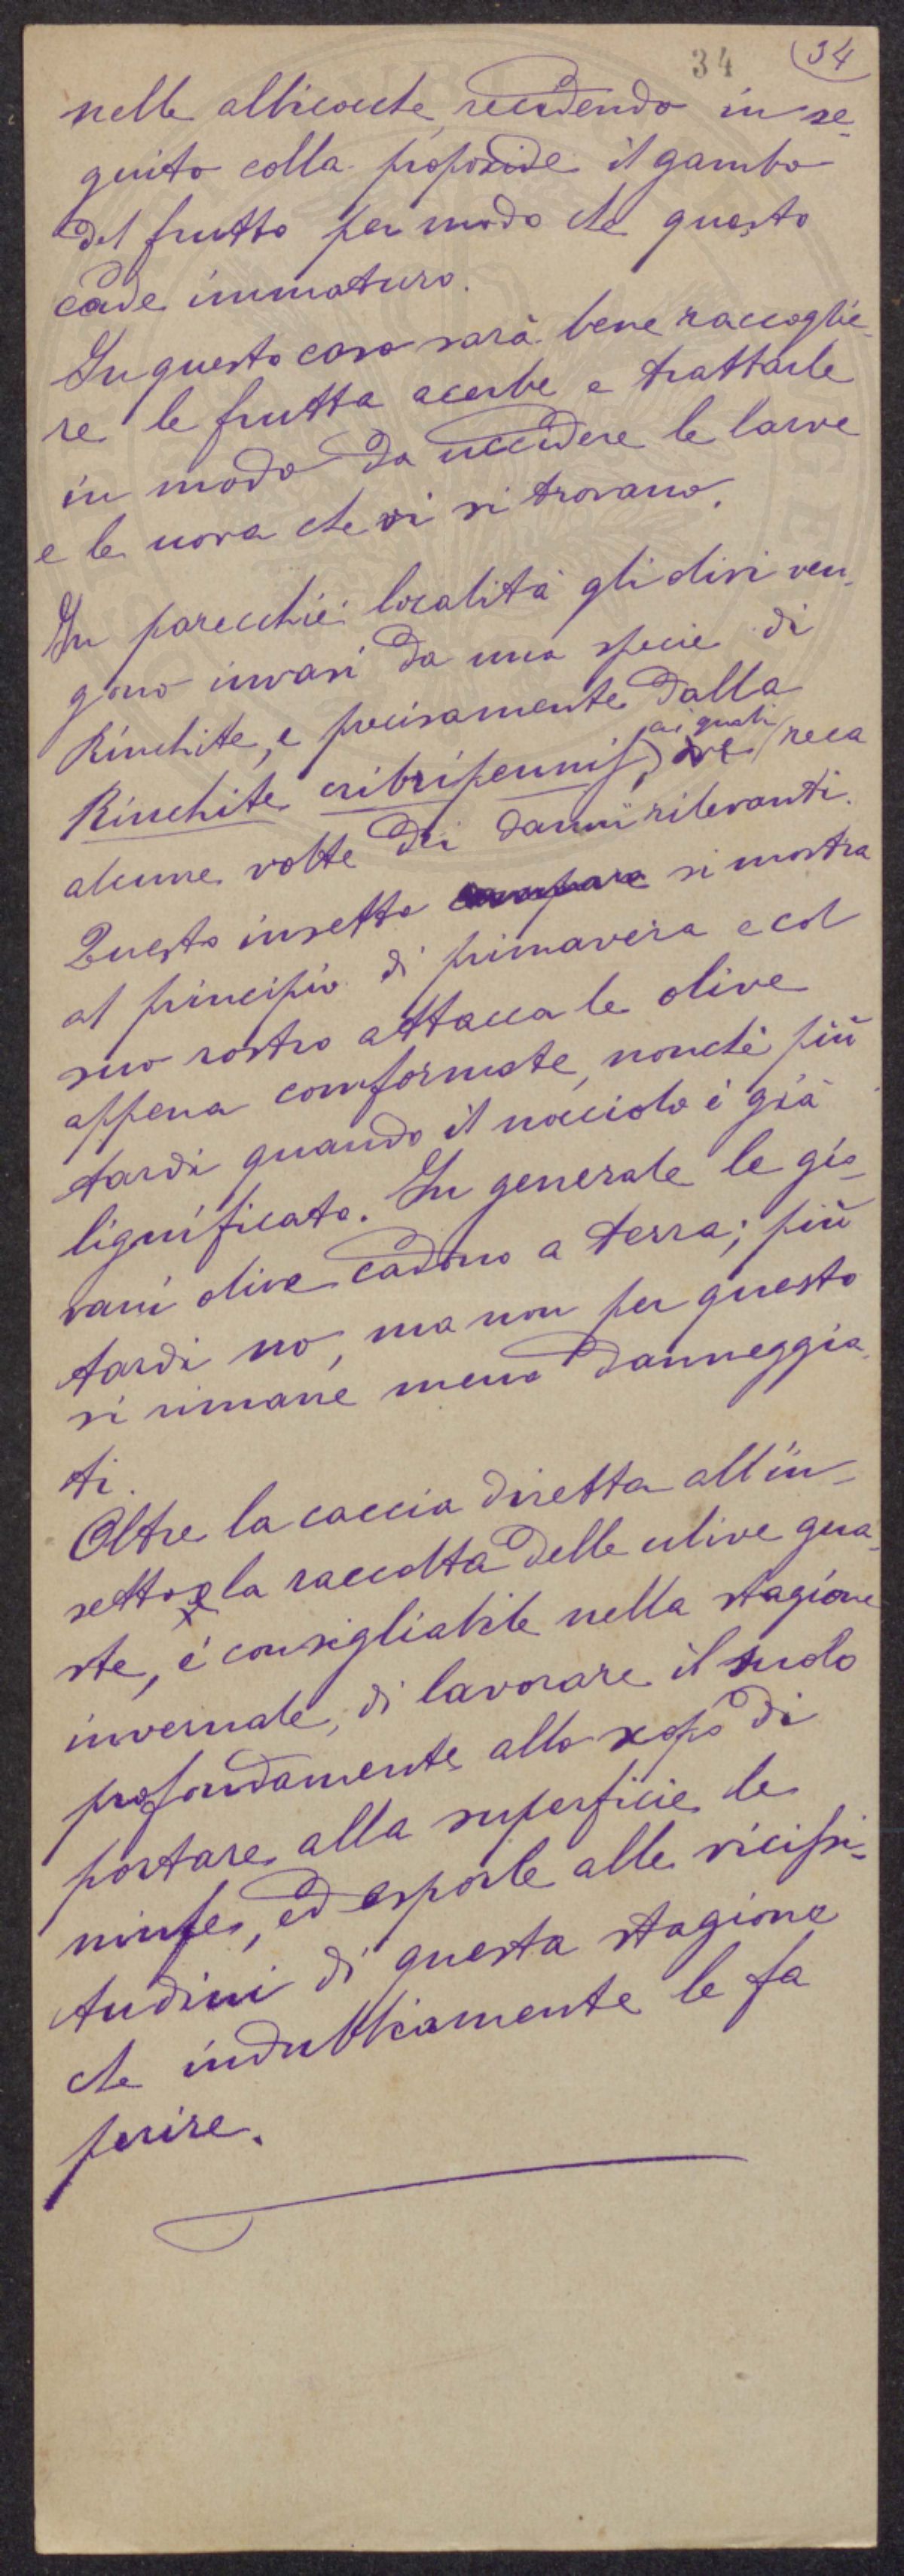 34 34
nelle albicocche, recidendo in se-
guito colla proposcide il gambo
del frutto per modo che questo
cade immaturo.
In questo caso sarà bene raccoglie-
re le frutta acerbe e trattarle
in modo da uccidere le larve
e le uova che vi si trovano.
In parecchie località gli olivi ven-
gono invasi da una specie di
Rinchite, e precisamente dalla
ai quali
Rinchite cribripennis, reca
alcune volte dei danni rilevanti.
Questo insetto compare si mostra
al principio di primavera e col
suo rostro attacca le olive
appena conformate, nonchè più
tardi quando il nocciolo è già
lignificato. In generale le gio-
vani olive cadono a terra; più
tardi no, ma non per questo
si rimane meno danneggia-
ti.
Oltre la caccia diretta all'in-
setto e la raccolta delle ulive gua-
ste, è consigliabile nella stagione
invernale, di lavorare il suolo
profondamente allo scopo di
portare alla superficie le
ninfe, ed esporle alle vicissi-
tudini di questa stagione
che indubbiamente le fa
perire.